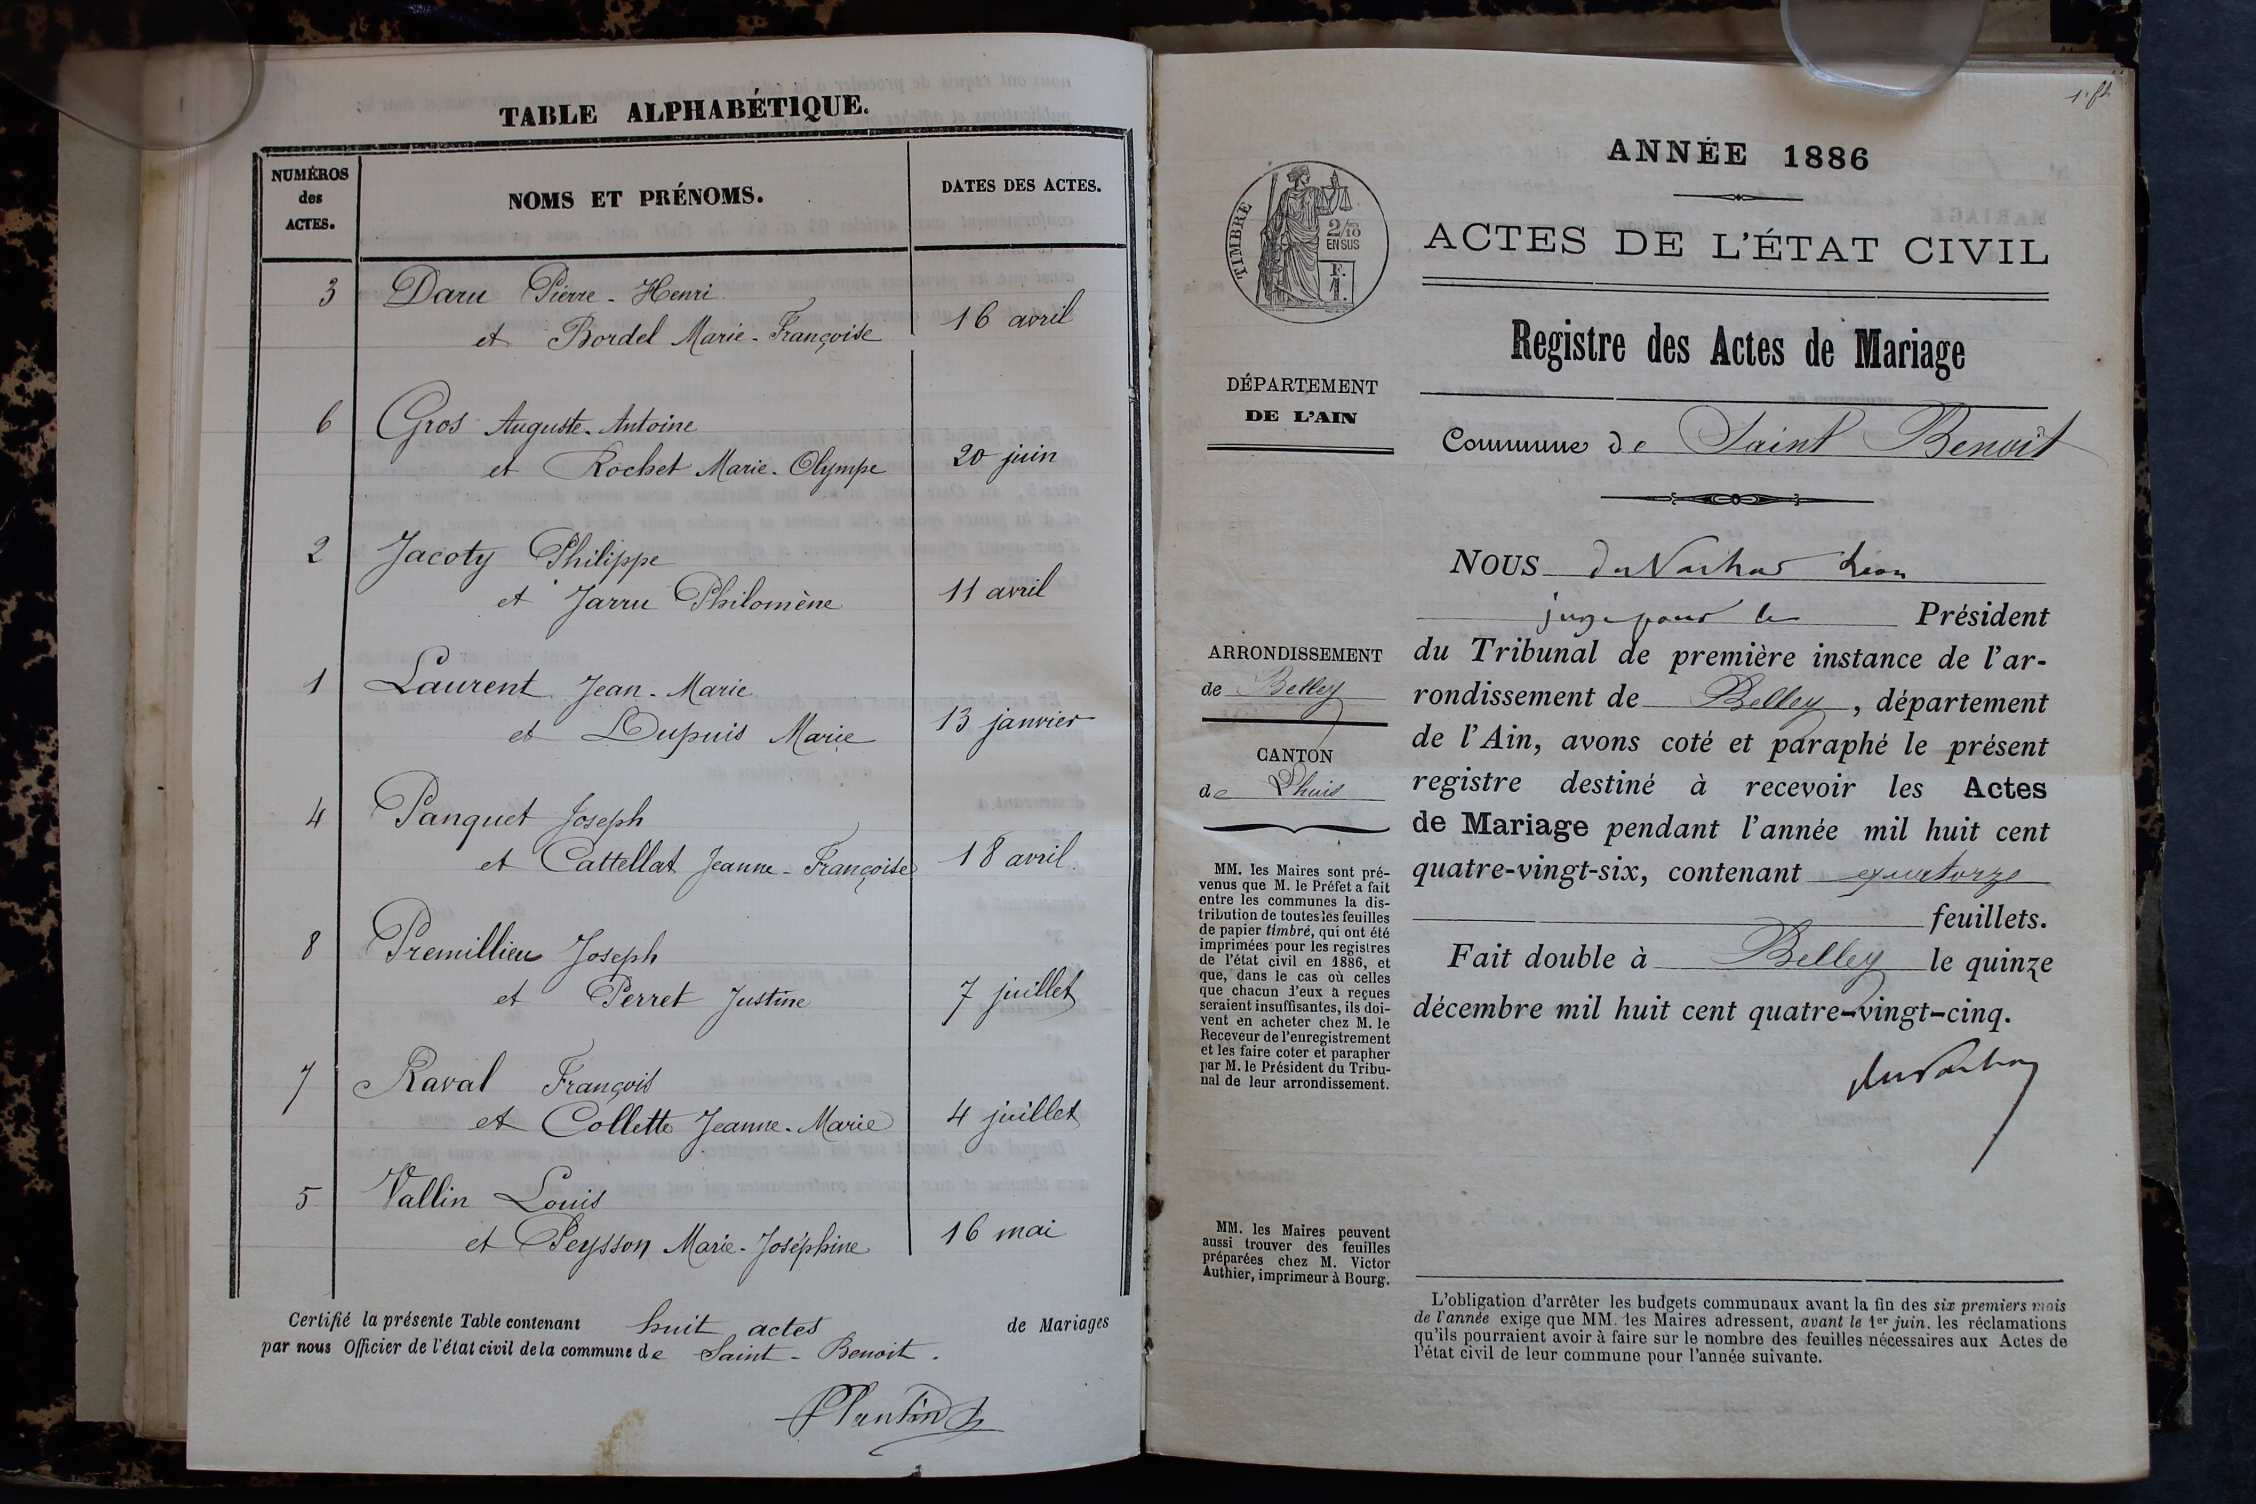 TABLE ALPHABÉTIQUE.
NUMÉROS
des
ACTES.
NOMS ET PRÉNOMS.
DATES DES ACTES.
3 Daru Pierre - Henri
et Bordel Marie - Françoise 16 avril
6 Gros Auguste - Antoine
et Rochet Marie - Olympe 20 juin
2 Jacoty Philippe
et Jarru Philomène 11 avril
1 Laurent Jean - Marie
et Dupuis Marie 13 janvier
4 Panquet Joseph
et Cattellat Jeanne - Françoise 18 avril
8 Premillieu Joseph
et Perret Justine 7 juillet
7 Raval François
et Collette Jeanne - Marie 4 juillet
5 Vallin Louis
et Peysson Marie - Joséphine 16 mai
Certifié la présente Table contenant huit actes de Mariages
par nous Officier de l'état civil de la commune de Saint - Benoit.
1er ft
ANNÉE 1886
TIMBRE
2/10
EN SUS
F.
1.
ACTES DE L'ÉTAT CIVIL
Registre des Actes de Mariage
DÉPARTEMENT
DE L'AIN
Commune de Saint Benoit
NOUS Léon
juge pour le Président
du Tribunal de première instance de l'ar-
rondissement de Belley, département
de l'Ain, avons coté et paraphé le présent
registre destiné à recevoir les Actes
de Mariage pendant l'année mil huit cent
quatre-vingt-six, contenant quatorze
feuillets.
Fait double à Belley le quinze
décembre mil huit cent quatre-vingt-cinq.
ARRONDISSEMENT
de Belley
CANTON
de Lhuis
MM. les Maires sont pré-
venus que M. le Préfet a fait
entre les communes la dis-
tribution de toutes les feuilles
de papier timbré, qui ont été
imprimées pour les registres
de l'état civil en 1886, et
que, dans le cas où celles
que chacun d'eux a reçues
seraient insuffisantes, ils doi-
vent en acheter chez M. le
Receveur de l'enregistrement
et les faire coter et parapher
par M. le Président du Tribu-
nal de leur arrondissement.
MM. les Maires peuvent
aussi trouver des feuilles
préparées chez M. Victor
Authier, imprimeur à Bourg.
L'obligation d'arrêter les budgets communaux avant la fin des six premiers mois
de l'année exige que MM. les Maires adressent, avant le 1er juin, les réclamations
qu'ils pourraient avoir à faire sur le nombre des feuilles nécessaires aux Actes de
l'état civil de leur commune pour l'année suivante.